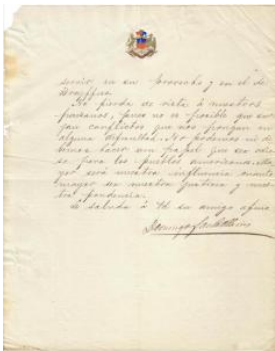 servir en su provecho y en el de
Dreyffus.
No pierda de vista á nuestros
peruanos, pues no es posible que sur
jan conflictos que nos pongan en
alguna dificultad. No podemos ni de
bemos hacer un papel que sea odio
so para los pueblos americanos. Ma
yor será nuestra influencia cuanto
mayor sea nuestra justicia y nues
tra prudencia.
Le saluda á Ud su amigo afmo
Domingo Santa María